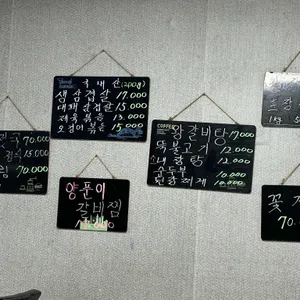 국내산(200g)
생삼겹살 17,000
대패삼겹살 15,000
제육볶음 13,000
오징어볶음 15,000
COFFEE
왕갈비탕 17,000
뚝불고기 12,000
소내장탕 12,000
순두부 10,000
된장찌개 10,000
70,000
15,000
70,000
양푼이
갈비찜
꽃게
70.